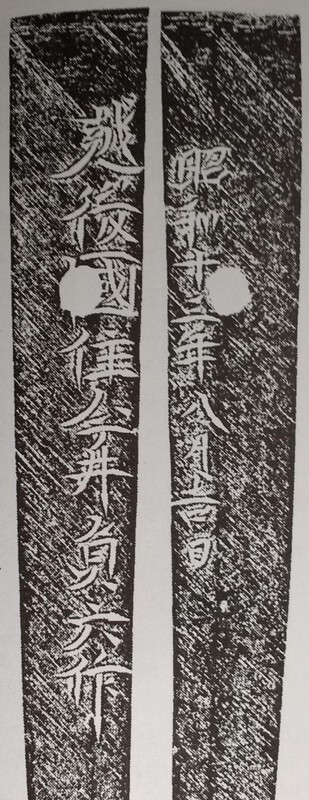 越後國住今井貞六作
昭和十二年八月吉日